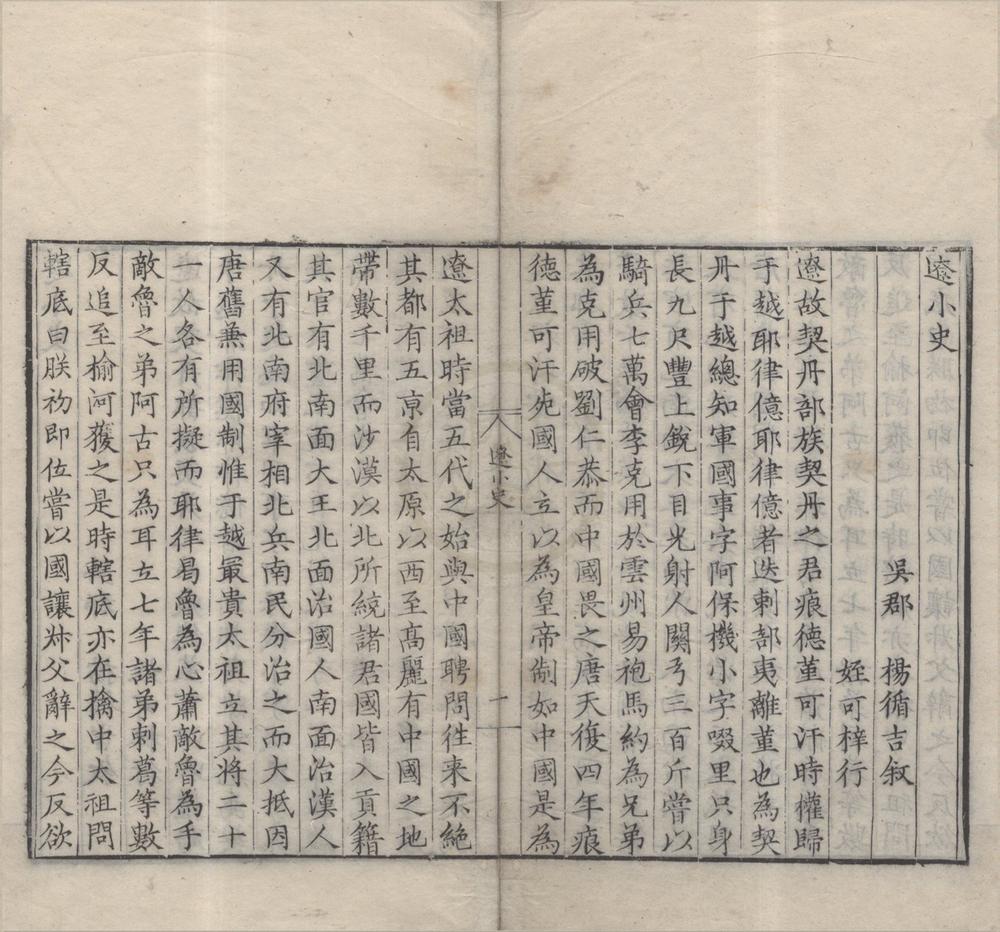 遼小史
吳郡　楊循吉叙
姪可梓行
遼故契丹部族契丹之君痕德堇可汗時權歸
于越耶律億耶律億者迭剌部夷離堇也為契
丹于越總知軍國事字阿保機小字啜里只身
長九尺豐上銳下目光射人關弓三百斤嘗以
騎兵七萬會李克用於雲州易袍馬約為兄弟
為克用破劉仁恭而中國畏之唐天復四年痕
德堇可汗殂國人立以為皇帝制如中國是為
遼小史
一
遼太祖時當五代之始與中國聘問往來不絕
其都有五京自太原以西至高麗有中國之地
帶數千里而沙漠以北所統諸君國皆入貢籍
其官有北南面大王北面治國人南面治漢人
又有北南府宰相北兵南民分治之而大抵因
唐舊兼用國制惟于越最貴太祖立其將二十
一人各有所擬而耶律曷魯為心蕭敵魯為手
敵魯之弟阿古只為耳立七年諸弟剌葛等數
反追至榆河獲之是時轄底亦在擒中太祖問
轄底曰朕初即位嘗以國讓叔父辭之今反欲